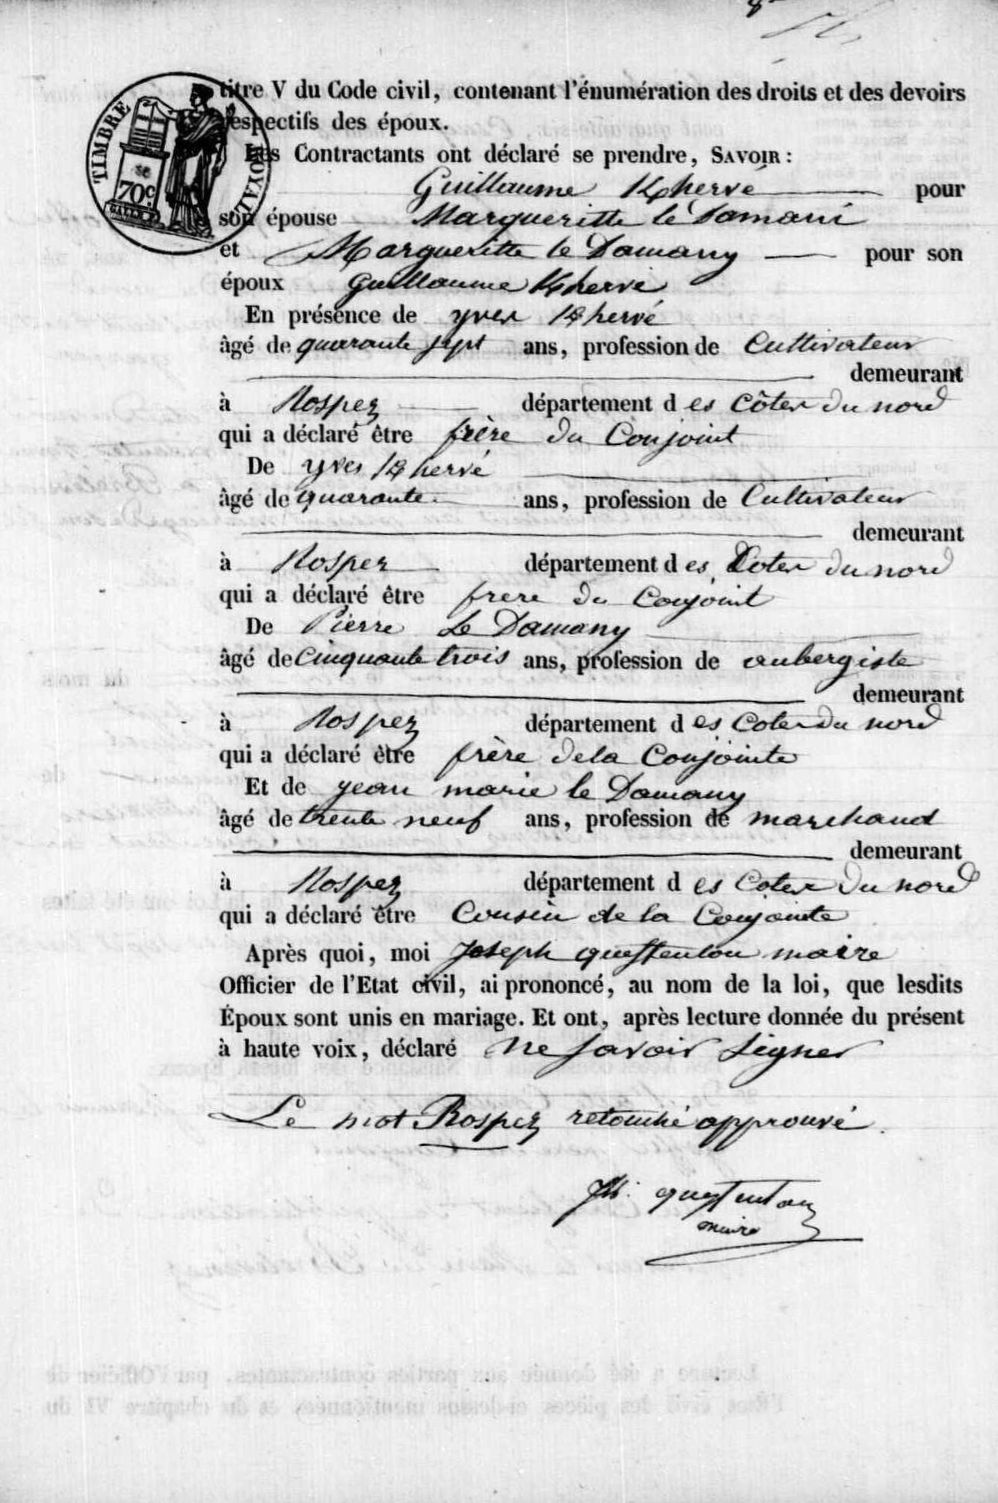 TIMBRE ROYAL
70c
titre V du Code civil, contenant l'énumération des droits et des devoirs
respectifs des époux.
Les Contractants ont déclaré se prendre, SAVOIR :
Guillaume Khervé pour
son épouse Margueritte le Damani
et Margueritte le Damany pour son
époux Guillaume Khervé
En présence de yves Khervé
âgé de quarante sept ans, profession de Cultivateur
demeurant
à Rospez département des côtes du nord
qui a déclaré être frère du Conjoint
De yves Khervé
âgé de quarante ans, profession de Cultivateur
demeurant
à Rospez département des Cotes du nord
qui a déclaré être frere du Conjoint
De Pierre Le Damany
âgé de Cinquante trois ans, profession de aubergiste
demeurant
à Rospez département des Cotes du nord
qui a déclaré être frère de la Conjointe
Et de jean marie le Damany
âgé de trente neuf ans, profession de marchand
demeurant
à Rospez département des Cotes du nord
qui a déclaré être Cousin de la Conjointe
Après quoi, moi Joseph questentou maire
Officier de l'Etat civil, ai prononcé, au nom de la loi, que lesdits
Époux sont unis en mariage. Et ont, après lecture donnée du présent
à haute voix, déclaré ne savoir signer
Le mot Rospez retouché approuvé.
maire